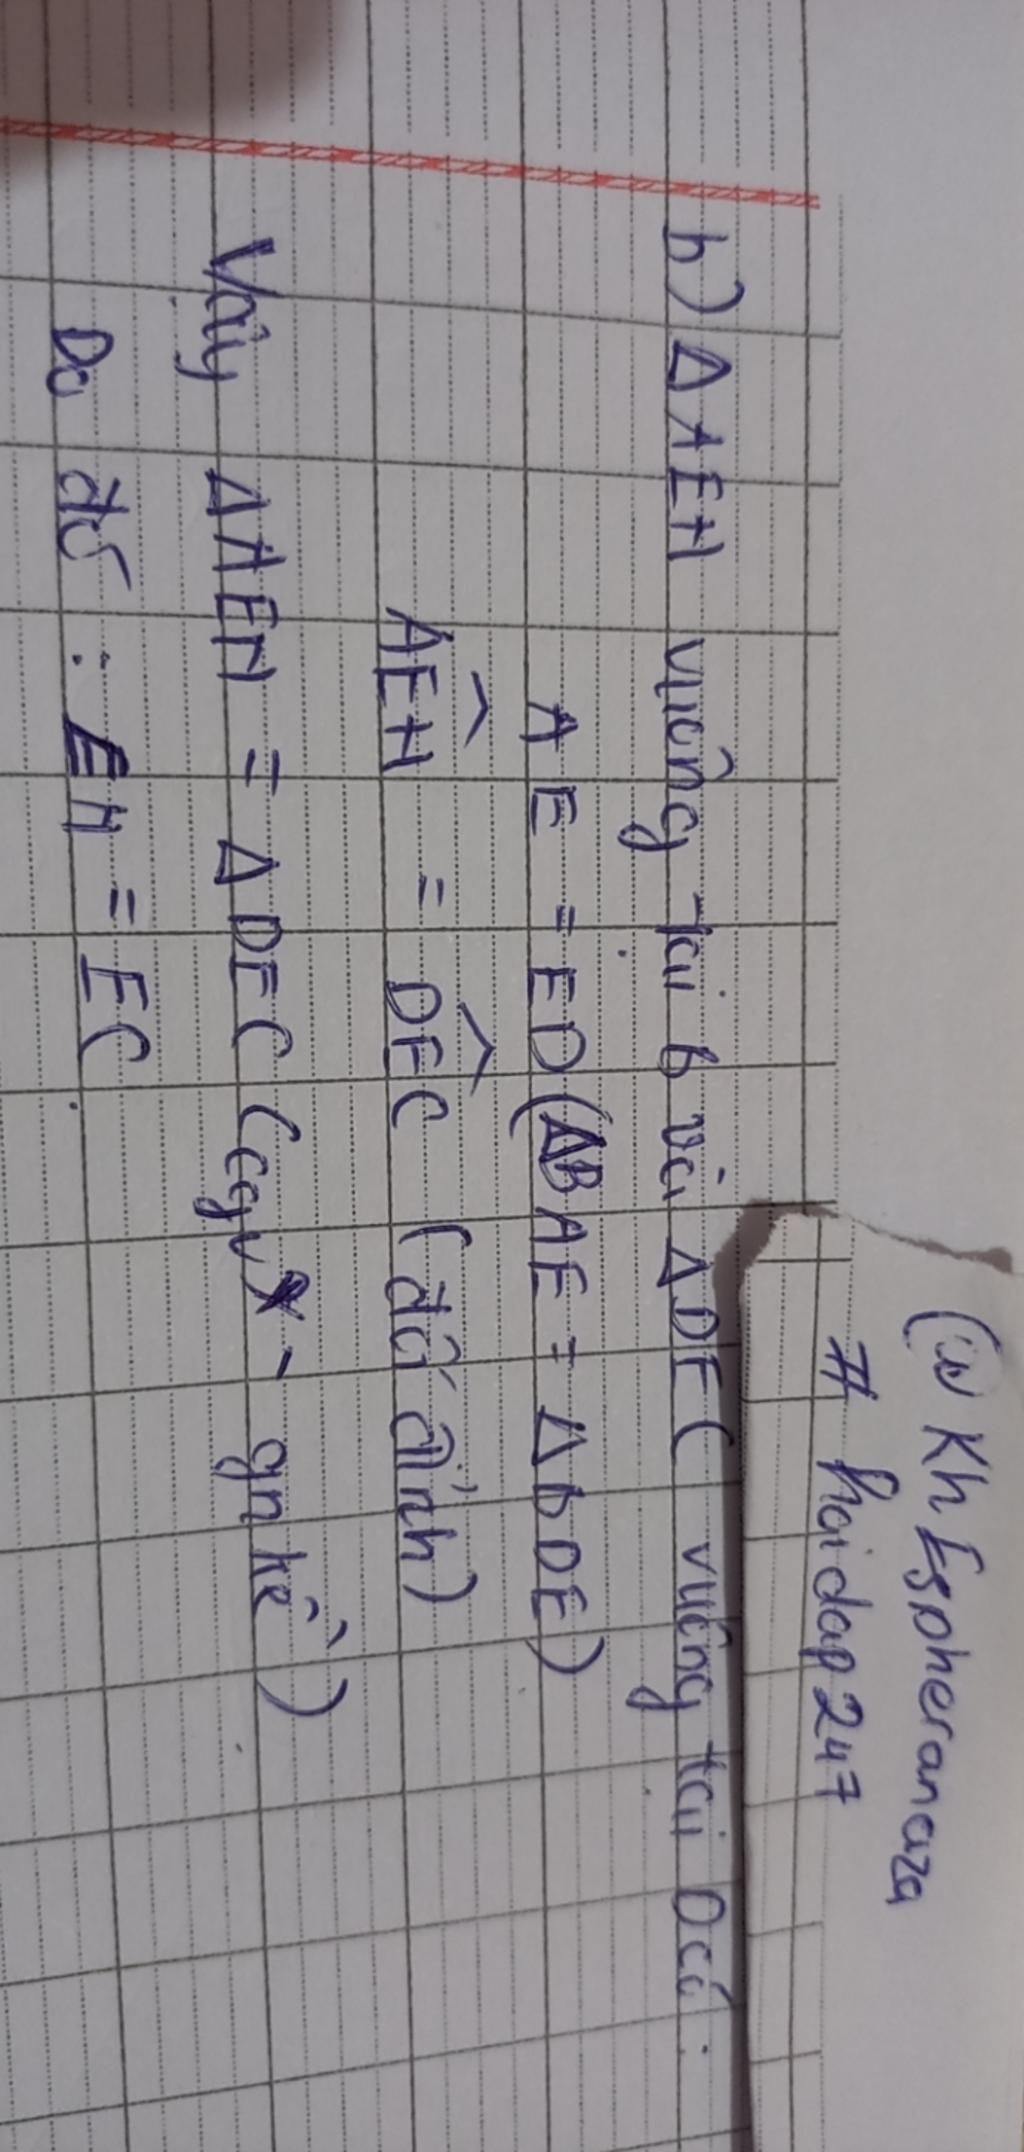 Kh Espheranaza
# hoidap247
b) Δ AEH vuông tại b và Δ DEC vuông tại D có :
AE = ED (ΔBAE = ΔbDE)
AEH = DEC (đối đỉnh)
Vậy ΔAEH = Δ DEC (cgv - gn kề)
Do đó : EH = EC